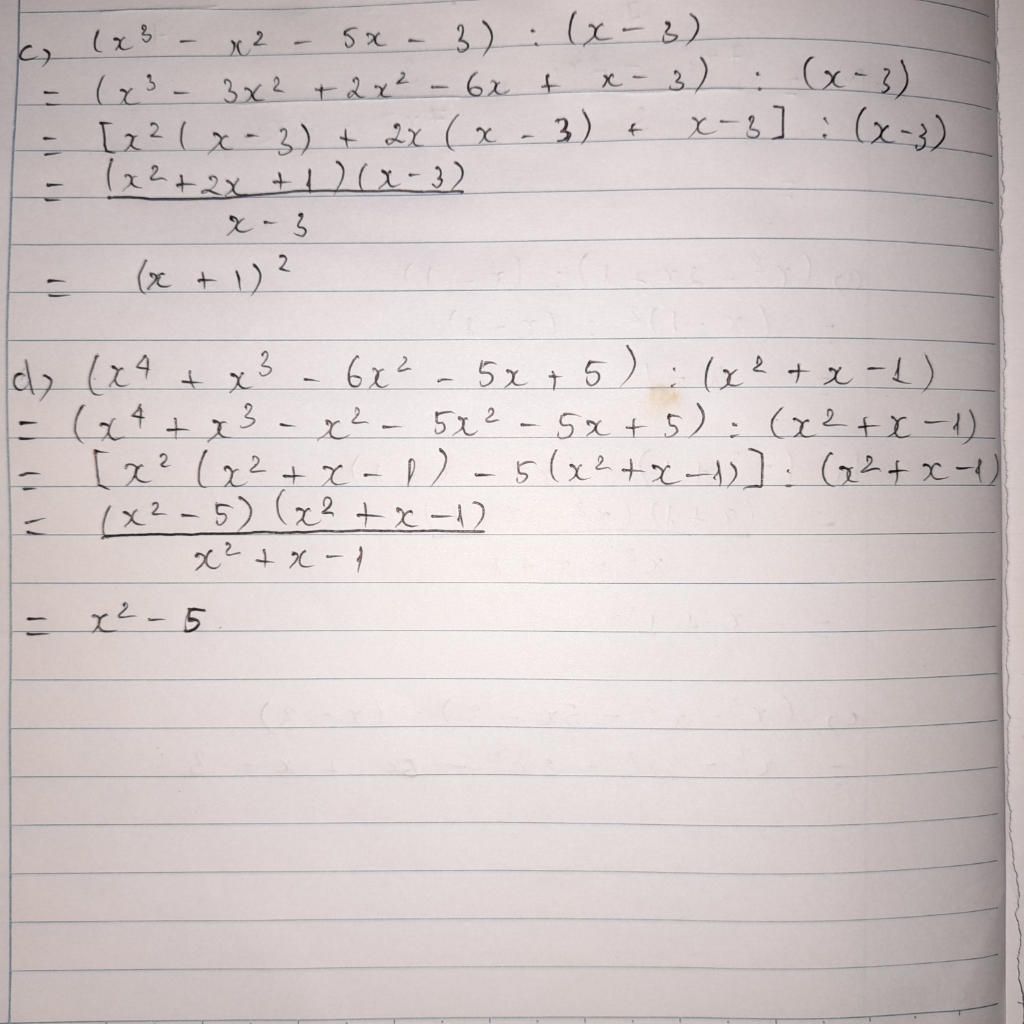 c) (x³ - x² - 5x - 3) : (x - 3)
= (x³ - 3x² + 2x² - 6x + x - 3) : (x - 3)
= [x²(x - 3) + 2x(x - 3) + x - 3] : (x - 3)
= (x² + 2x + 1)(x - 3)
x - 3
= (x + 1)²
d) (x⁴ + x³ - 6x² - 5x + 5) : (x² + x - 1)
= (x⁴ + x³ - x² - 5x² - 5x + 5) : (x² + x - 1)
= [x²(x² + x - 1) - 5(x² + x - 1)] : (x² + x - 1)
= (x² - 5)(x² + x - 1)
x² + x - 1
= x² - 5